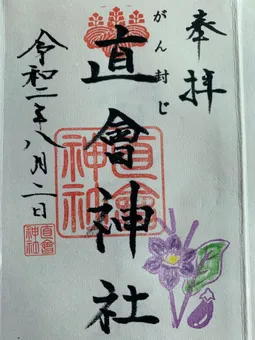 奉拝
がん封じ
直會神社
直會
神社
令和二年八月二日
直會
神社